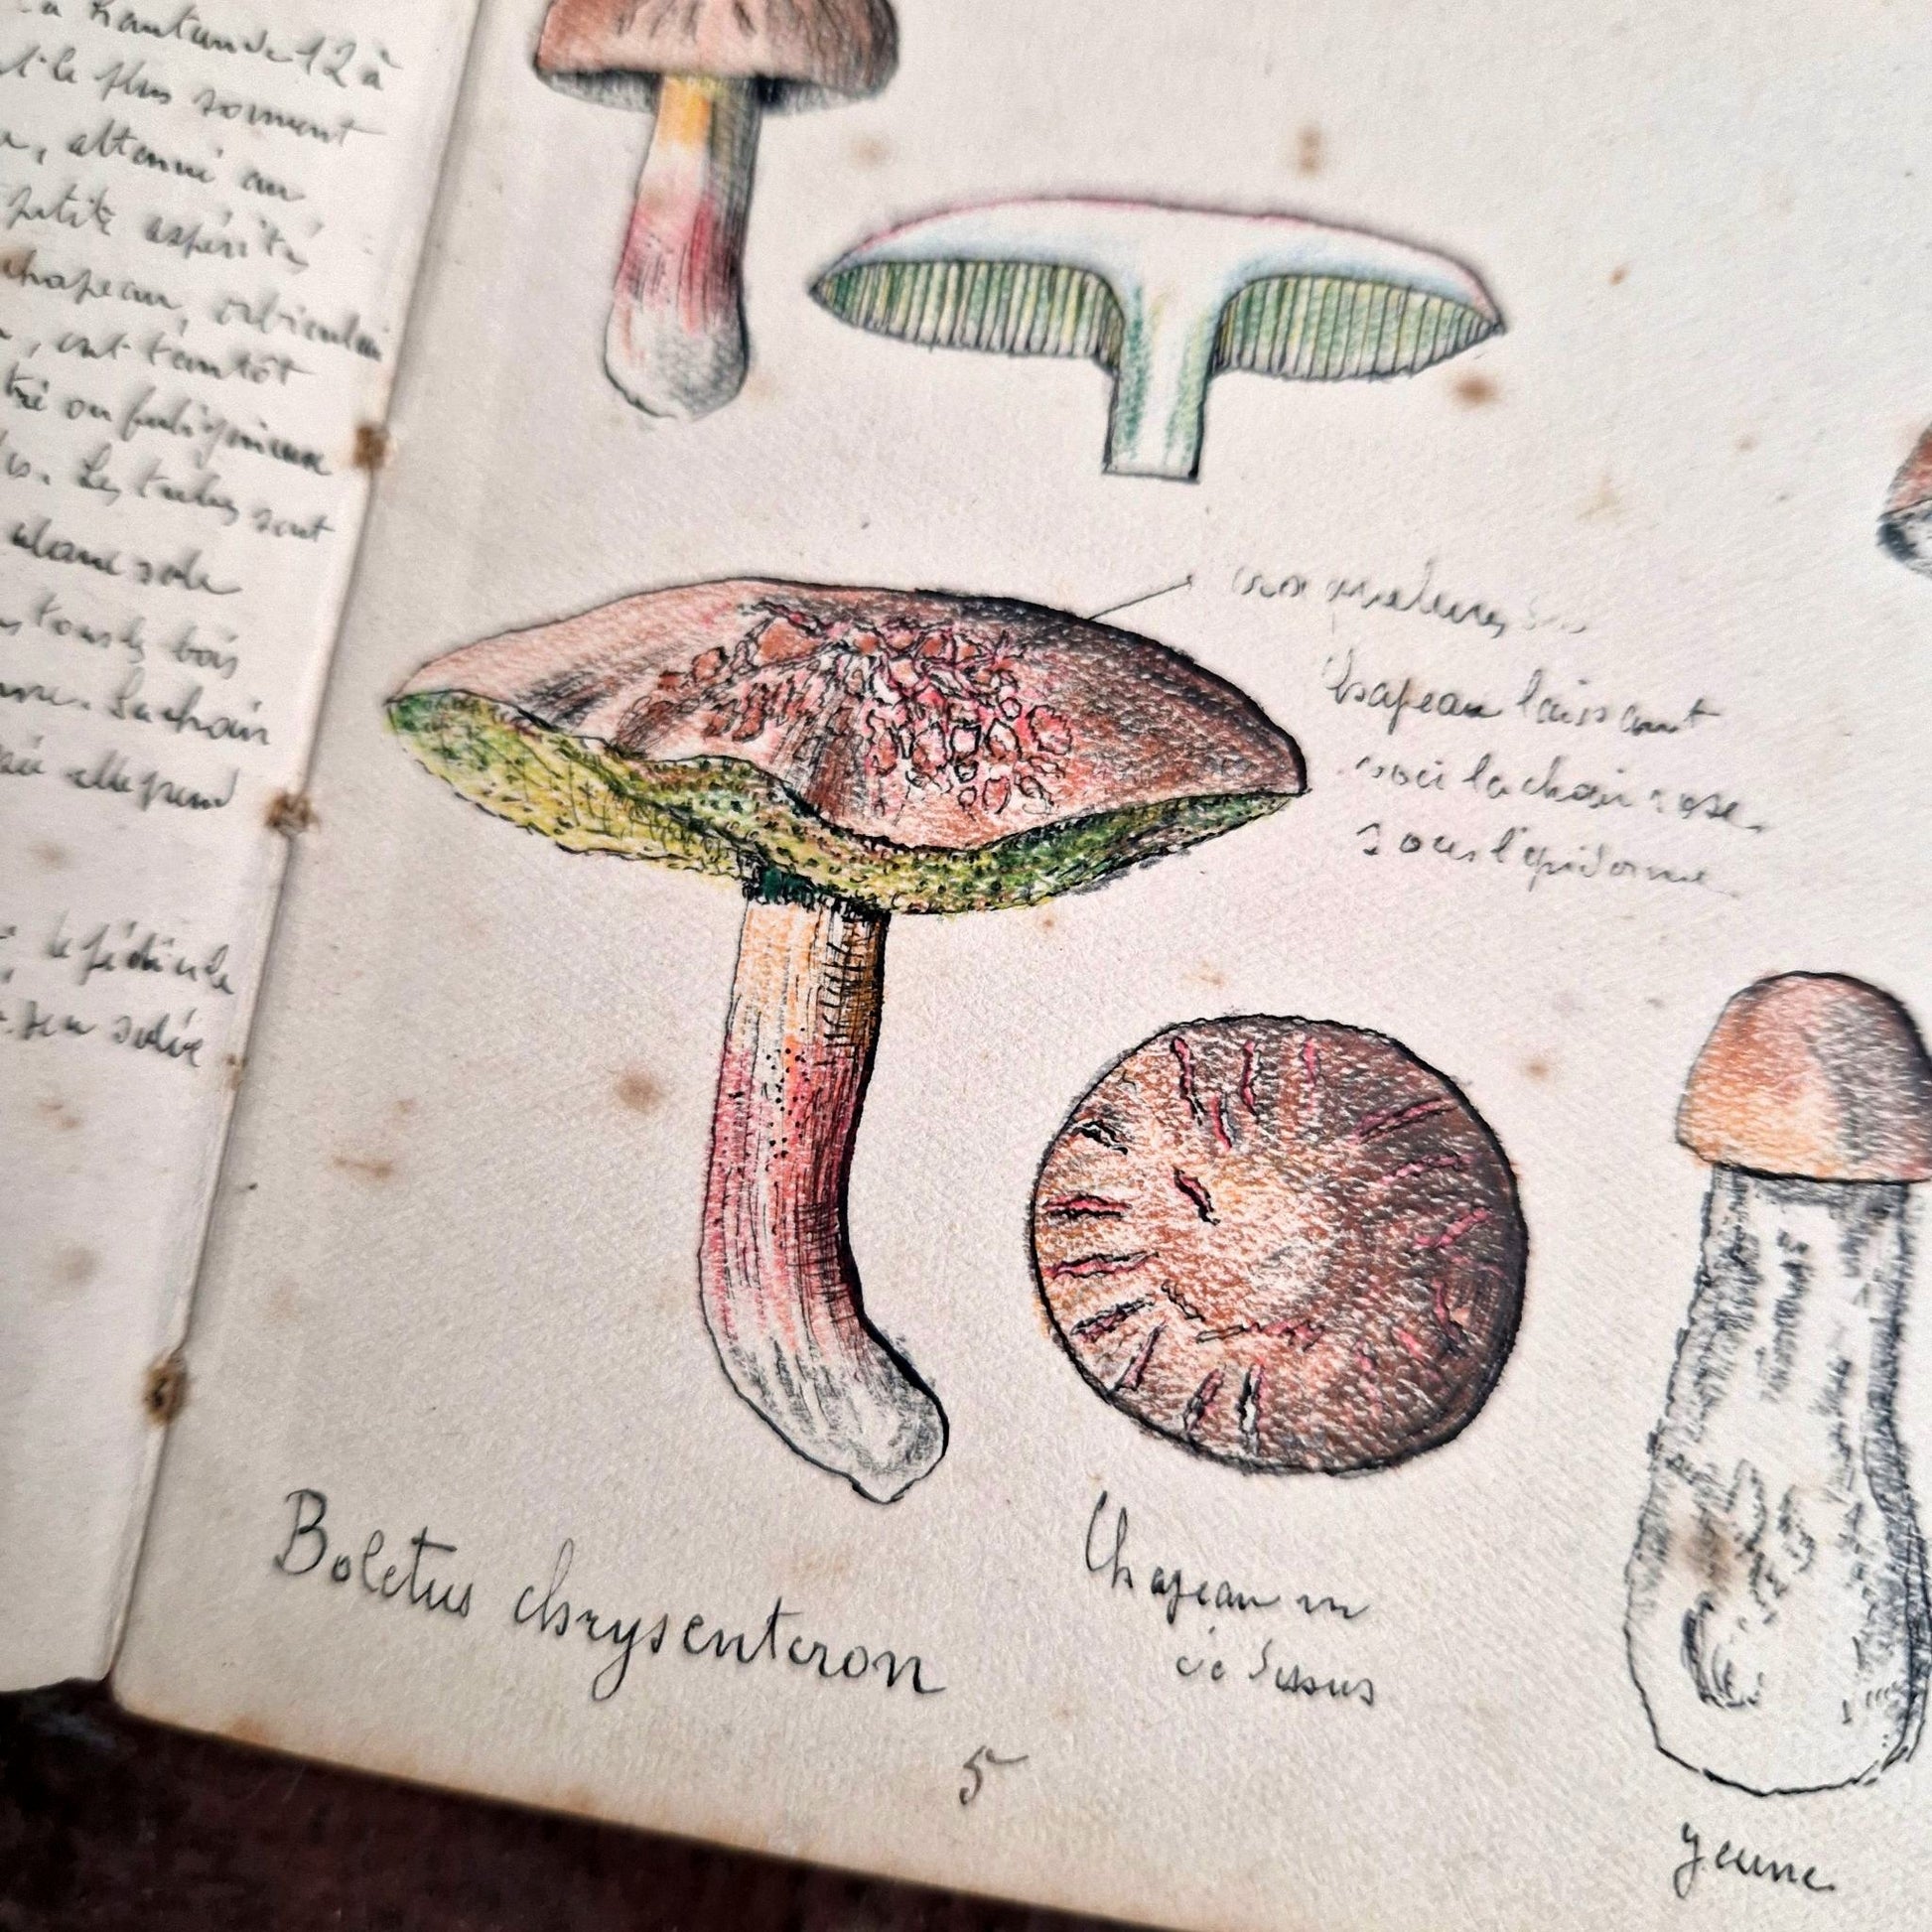 la hauteur de 12 à
st le plus souvent
, atténué au
petite aspérité
chapeau, orbiculai
, est tantôt
tré ou fuligineux
Les tubes sont
tous les bois
La chair
elle prend
le pédicule
craquelures du
Chapeau laissant
voir la chair rose
sous l'épiderme
Boletus chrysenteron
Chapeau vu
de dessus
5
jeune